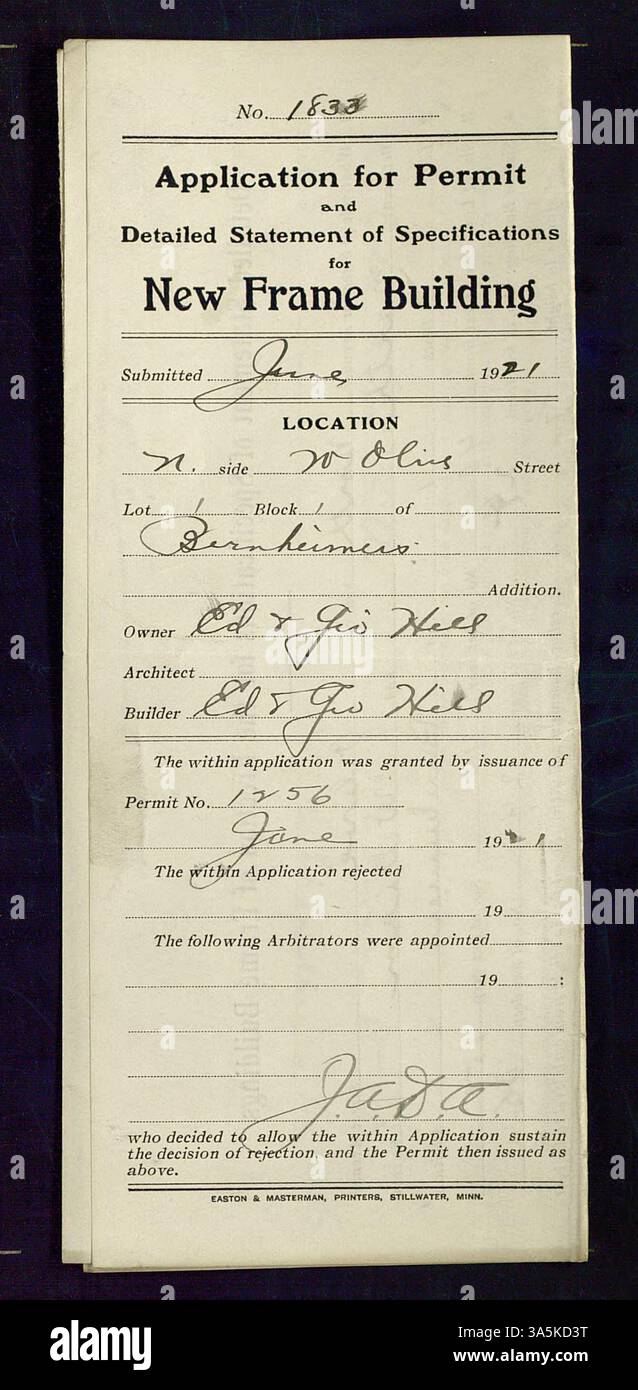 No. 1833
Application for Permit
and
Detailed Statement of Specifications
for
New Frame Building
Submitted June 1921
LOCATION
N. side W Olive Street
Lot 1 Block 1 of
Bernheimers
Addition.
Owner Ed & Geo Hill
Architect
Builder Ed & Geo Hill
The within application was granted by issuance of
Permit No. 1256
June 1921
The within Application rejected
19
The following Arbitrators were appointed
19 :
J.A.D.A.
who decided to allow the within Application sustain
the decision of rejection, and the Permit then issued as
above.
EASTON & MASTERMAN, PRINTERS, STILLWATER, MINN.
alamy
Image ID: A5KD3T
www.alamy.com